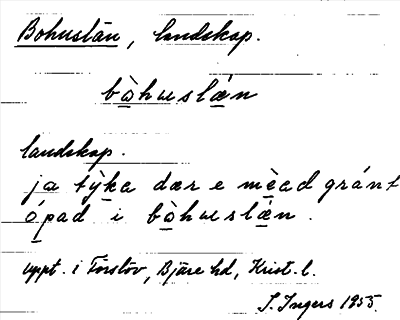 Bohuslän, landskap.
bòhuslǽn
landskap.
ja týka dær e mèad gránt
ópad i bòhuslǽn.
uppt. i Torslöv, Bjäre hd, Krist. l.
S. Ingers 1955.